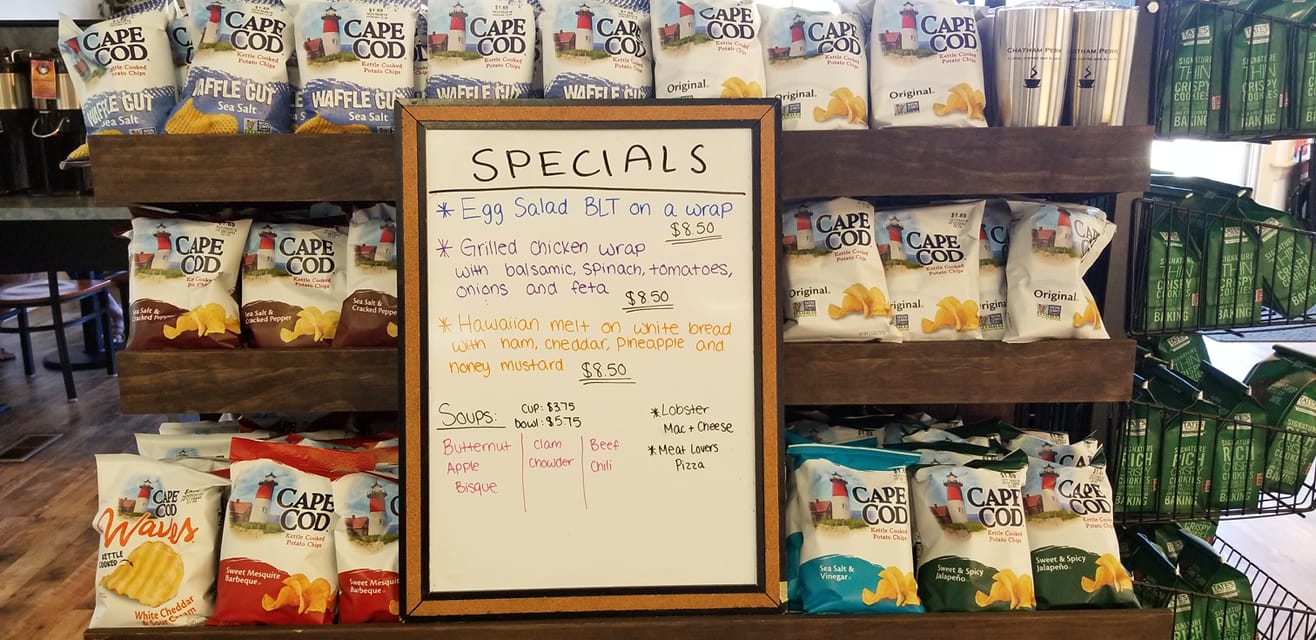 CAPE COD
WAFFLE CUT
Sea Salt
CAPE COD
WAFFLE CUT
Sea Salt
CAPE COD
Kettle Cooked
Potato Chips
WAFFLE CUT
Sea Salt
CAPE COD
Kettle Cooked
Potato Chips
WAFFLE CUT
CAPE COD
Kettle Cooked
Potato Chips
WAFFLE CUT
COD
Kettle Cooked
Potato Chips
Original.
CAPE COD
Kettle Cooked
Potato Chips
Original.
CAPE COD
Kettle Cooked
Potato Chips
Original.
CHATHAM PERK
SIGNATURE
THIN
CRISPY
COOKIES
BAKING
SPECIALS
* Egg Salad BLT on a wrap
$8.50
* Grilled chicken wrap
with balsamic, spinach, tomatoes,
onions and feta $8.50
* Hawaiian melt on white bread
with ham, cheddar, pineapple and
honey mustard $8.50
Soups: cup: $3.75
bowl: $5.75
Butternut
Apple
Bisque
Clam
Chowder
Beef
Chili
* Lobster
Mac + Cheese
* Meat Lovers
Pizza
CAPE COD
Sea Salt &
Cracked Pepper
CAPE COD
Kettle Cooked
Potato Chips
Sea Salt &
Cracked Pepper
Sea Salt &
Cracked Peppe
CAPE COD
Kettle Cooked
Potato Chips
Original.
$1.69
CAPE COD
Kettle Cooked
Potato Chips
CAPE COD
Original.
SIGNATURE
THIN
CRISPY
COOKIES
TATE'S
BAKING
CAPE COD
Waves
KETTLE
COOKED
White Cheddar
& Sour Cream
CAPE COD
Kettle Cooked
Potato Chips
Sweet Mesquite
Barbeque
CAPE COD
Kettle Cooked
Potato Chips
Sweet Mesquit
Barbeque
CAPE COD
Kettle Cooked
Potato Chips
Sea Salt &
Vinegar
CAPE COD
Kettle Cooked
Potato Chips
Sweet & Spicy
Jalapeño
CAPE COD
Kettle Cooked
Potato Chips
Sweet & Spicy
Jalapeño
TATE'S
SIGNATURE
RICH
CRISPY
BAKING